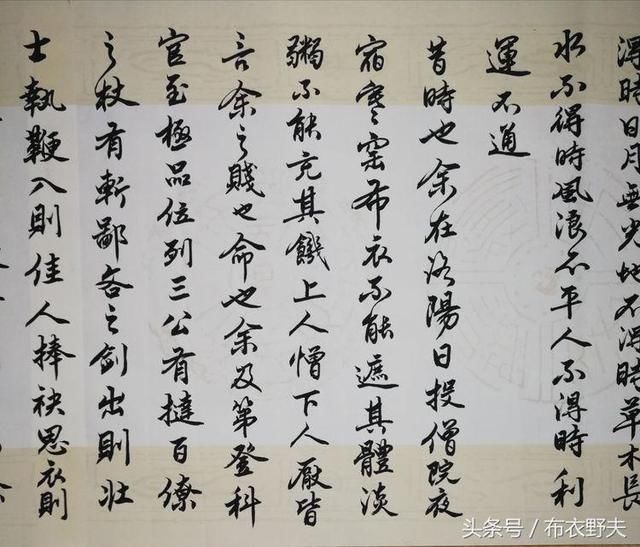 得時日月無光地不得時草木長
水不得時風浪不平人不得時利
運不通
昔時也余在洛陽日投僧院夜
宿寒窯布衣不能遮其體淡
粥不能充其饑上人憎下人厭皆
言余之賤也命也余及第登科
官至極品位列三公有撻百僚
之杖有斬鄙吝之劍出則壯
士執鞭入則佳人捧袂思衣則
头条号 / 布衣野夫